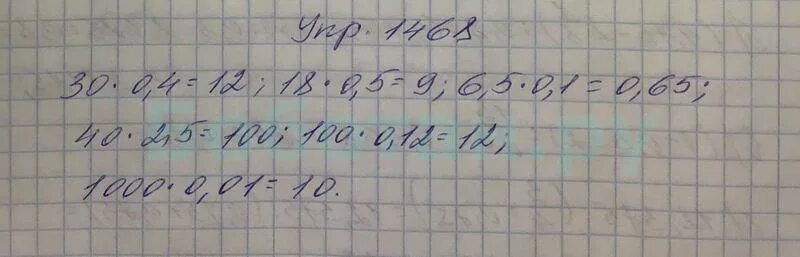 Упр. 1468
30 · 0,4 = 12; 18 · 0,5 = 9; 6,5 · 0,1 = 0,65;
40 · 2,5 = 100; 100 · 0,12 = 12;
1000 · 0,01 = 10.